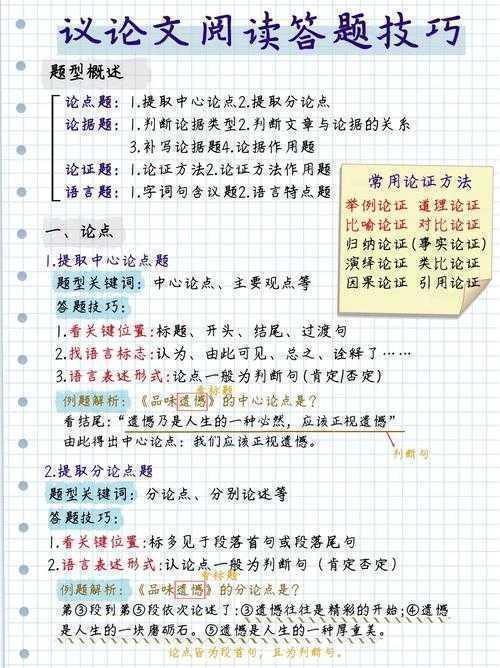 议论文阅读答题技巧
题型概述
论点题：1.提取中心论点2.提取分论点
论据题：1.判断论据类型2.判断文章与论据的关系
3.补写论据题4.论据作用题
论证题：1.论证方法2.论证方法作用题
语言题：1.字词句含议题2.语言特点题
常用论证方法
举例论证 道理论证
比喻论证 对比论证
归纳论证(事实论证)
演绎论证 类比论证
因果论证 引用论证
一、论点
1.提取中心论点题
题型关键词：中心论点、主要观点等
答题技巧：
1.看关键位置:标题、开头、结尾、过渡句
2.找语言标志:认为、由此可见、总之、诠释了……
3.语言表述形式:论点一般为判断句(肯定/否定)
看标题
例题解析：《品味遗憾》的中心论点是？
看结尾：“遗憾乃是人生的一种必然，应该正视遗憾”
由此得出中心论点：我们应该正视遗憾。
判断句
2.提取分论点题
题型关键词：分论点、分别论述等
答题技巧：
1.看关键位置:标多见于段落首句或段落尾句
2.语言表述形式:认论点一般为判断句（肯定否定）
看标题
例题解析：《品味遗憾》的分论点是？
第③段到第⑤段依次论述了：③遗憾往往是精彩的开始；④遗憾
是人生的一块磨砺石。⑤遗憾是人生的一种厚重美。
论点皆为段首句，且为判断句。